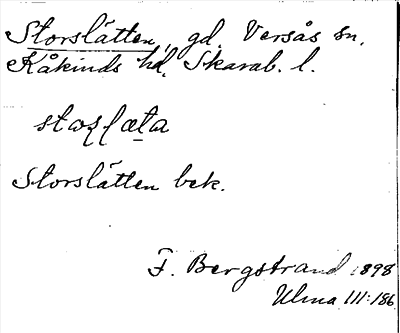 Storslätten, gd. Versås sn,
Kåkinds hd, Skarab. l.
Storslätten bek.
F. Bergstrand 1898
Ulma III:186